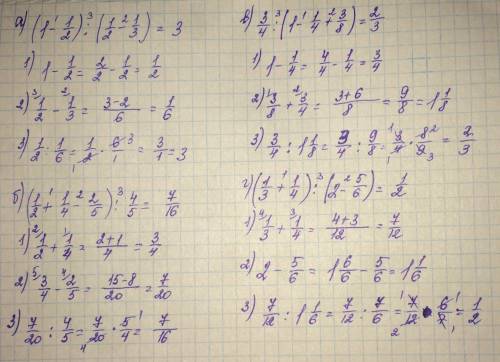 а) (1 -¹ 1/2) :³ (1/2 -² 1/3) = 3
1) 1 - 1/2 = 2/2 - 1/2 = 1/2
2) ³1/2 - ²1/3 = 3-2/6 = 1/6
3) 1/2 : 1/6 = 1/2 · 6³/1 = 3/1 = 3
б) (1/2 +¹ 1/4 -² 2/5) :³ 4/5 = 7/16
1) ²1/2 + ¹1/4 = 2+1/4 = 3/4
2) ⁵3/4 - ⁴2/5 = 15-8/20 = 7/20
3) 7/20 : 4/5 = 7/20₄ · 5¹/4 = 7/16
в) 3/4 :³ (1 -¹ 1/4 +² 3/8) = 2/3
1) 1 - 1/4 = 4/4 - 1/4 = 3/4
2) ¹3/8 + ²3/4 = 3+6/8 = 9/8 = 1 1/8
3) 3/4 : 1 1/8 = 3/4 : 9/8 = ¹3/4₁ · 8²/9₃ = 2/3
г) (1/3 +¹ 1/4) :³ (2 -² 5/6) = 1/2
1) ⁴1/3 + ³1/4 = 4+3/12 = 7/12
2) 2 - 5/6 = 1 6/6 - 5/6 = 1 1/6
3) 7/12 : 1 1/6 = 7/12 : 7/6 = ¹7/12₂ · 6¹/7₁ = 1/2